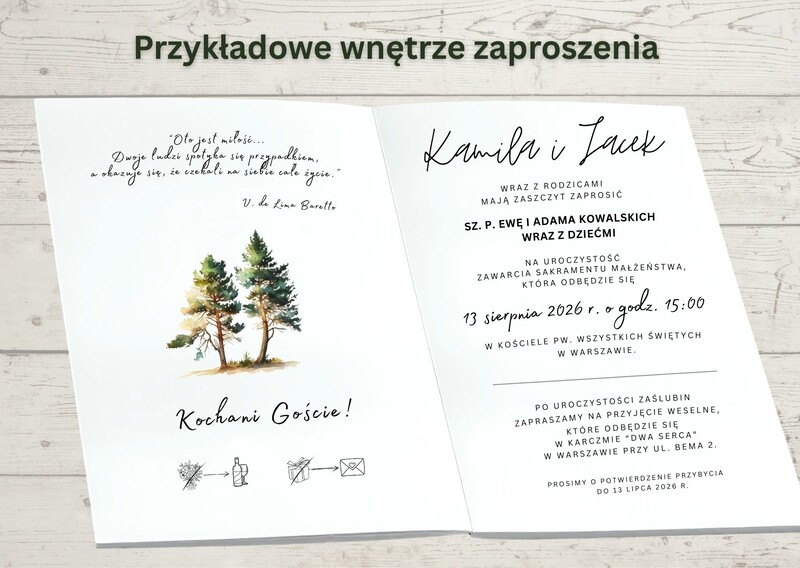 Przykładowe wnętrze zaproszenia
"Oto jest miłość...
Dwoje ludzi spotyka się przypadkiem,
a okazuje się, że czekali na siebie całe życie."
V. de Lima Baretto
Kochani Goście!
Kamila i Jacek
WRAZ Z RODZICAMI
MAJĄ ZASZCZYT ZAPROSIĆ
SZ. P. EWĘ I ADAMA KOWALSKICH
WRAZ Z DZIEĆMI
NA UROCZYSTOŚĆ
ZAWARCIA SAKRAMENTU MAŁŻEŃSTWA,
KTÓRA ODBĘDZIE SIĘ
13 sierpnia 2026 r. o godz. 15:00
W KOŚCIELE PW. WSZYSTKICH ŚWIĘTYCH
W WARSZAWIE.
PO UROCZYSTOŚCI ZAŚLUBIN
ZAPRASZAMY NA PRZYJĘCIE WESELNE,
KTÓRE ODBĘDZIE SIĘ
W KARCZMIE "DWA SERCA"
W WARSZAWIE PRZY UL. BEMA 2.
PROSIMY O POTWIERDZENIE PRZYBYCIA
DO 13 LIPCA 2026 R.